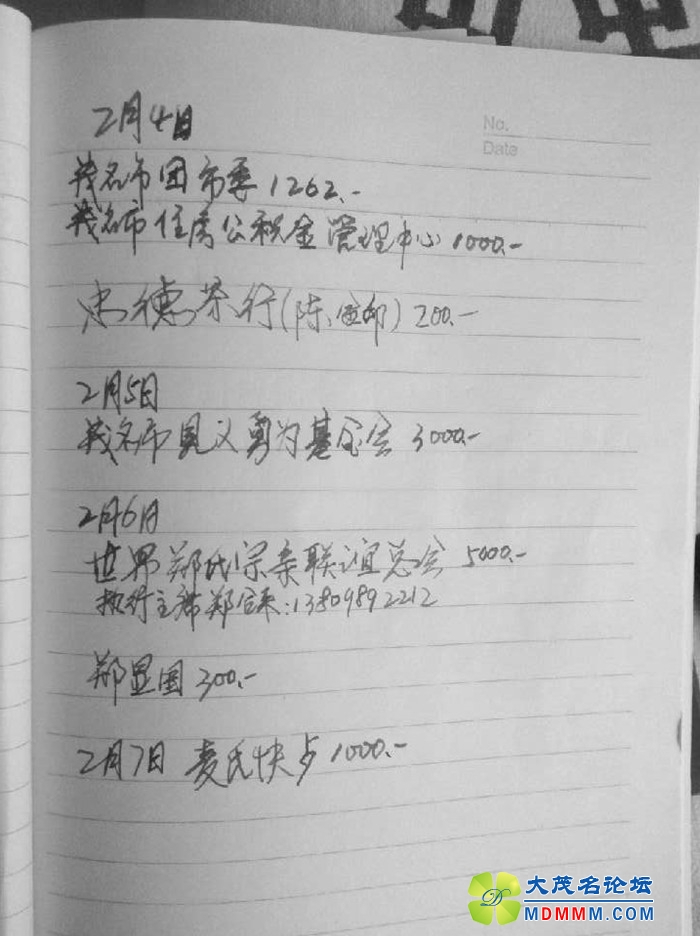 No.
Date
2月4日
茂名市团市委 1262.-
茂名市住房公积金管理中心 1000.-
德茶行(陈 ) 200.-
2月5日
茂名市见义勇为基金会 3000.-
2月6日
世界郑氏宗亲联谊总会 5000.-
执行主席郑金来:13809892212
郑显国 300.-
2月7日 麦氏快步 1000.-
大茂名论坛
MDMMM.COM